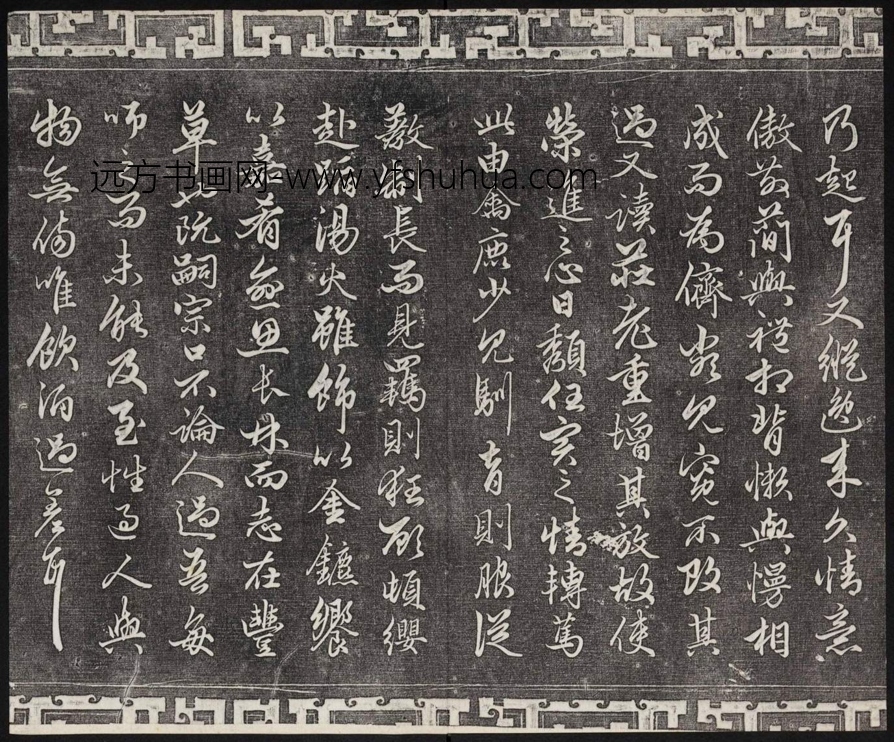 乃起耳又縱逸来久情意
傲散蕳與禮相背懶與慢相
成而為儕類見寛不攻其
過又讀莊老重增其放故使
榮進之心日頹任實之情轉篤
此由禽鹿少見馴育則服従
教制長而見羈則狂顧頓纓
赴蹈湯火雖飾以金鑣饗
以嘉肴愈思長林而志在豐
草也阮嗣宗口不論人過吾每
師之而未能及至性過人與
物無傷唯飲酒過差耳
远方书画网-www.yfshuhua.com